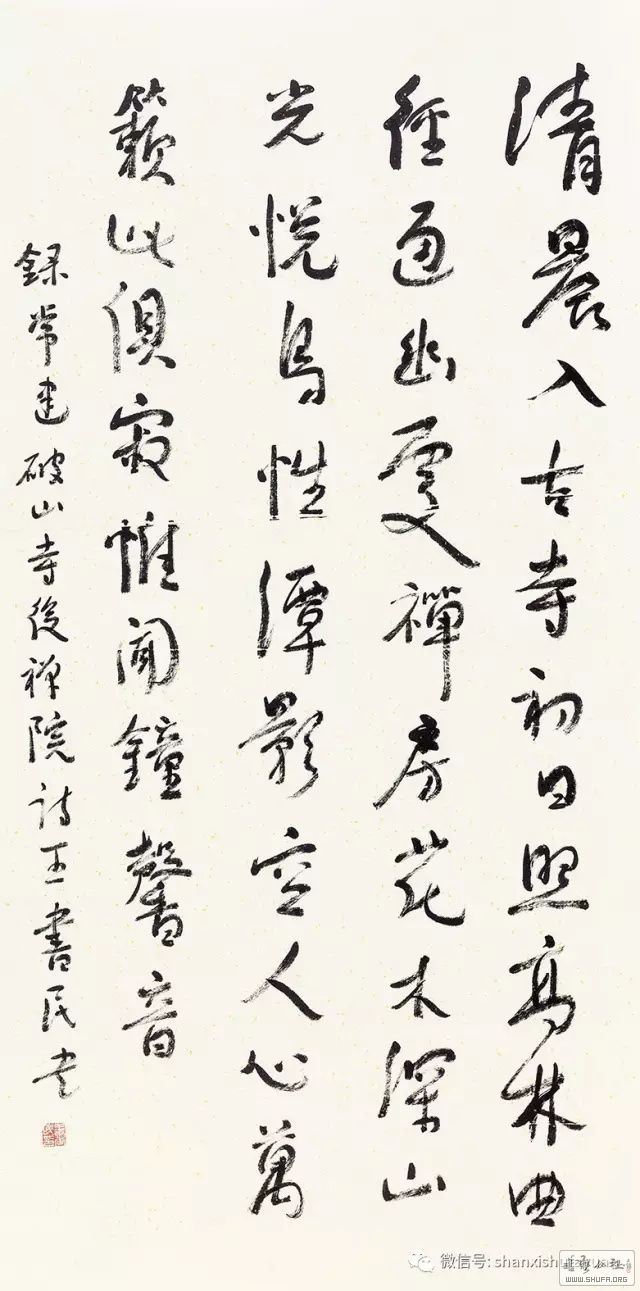 清晨入古寺初日照高林曲
徑通幽處禪房花木深山
光悦鳥性潭影空人心萬
籟此俱寂惟聞鐘馨音
録常建破山寺後禅院诗王書民书
微信号:
WWW.SHUFA.ORG